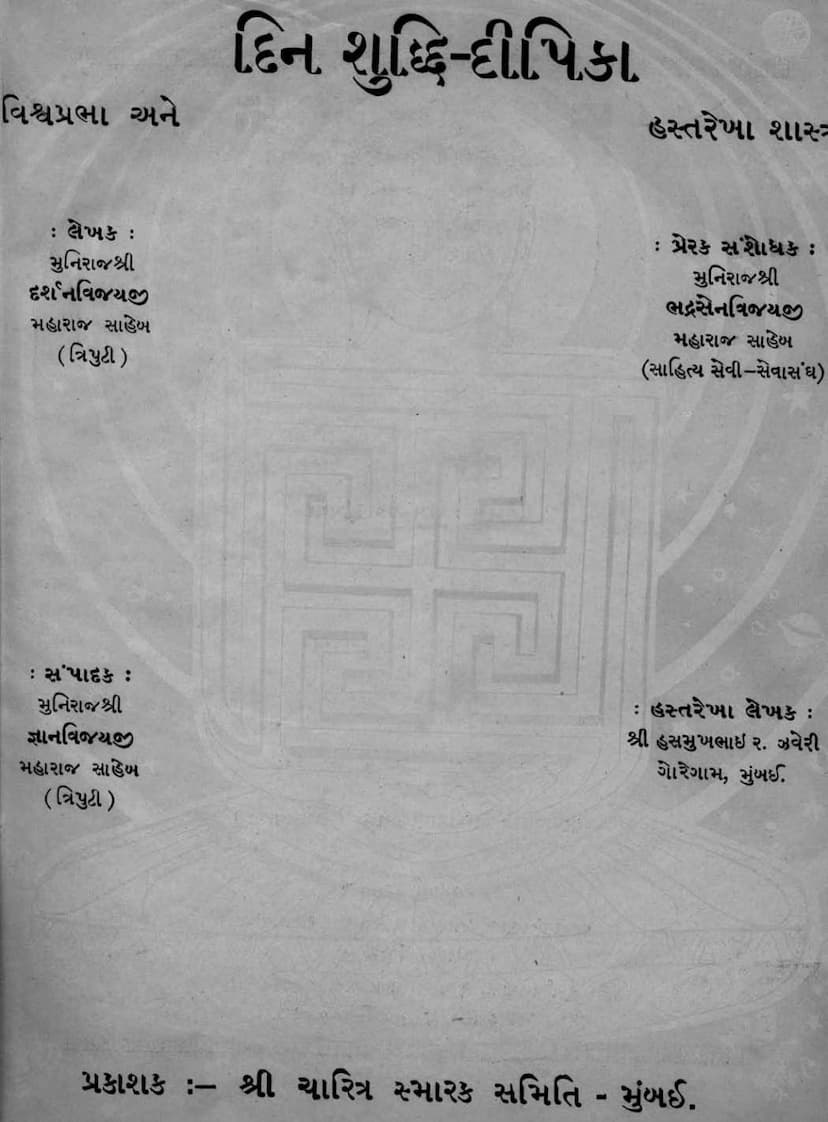 દિન શુદ્ધિ-દીપિકા
વિશ્વપ્રભા અને
હસ્તરેખા શાસ્ત્ર
: લેખક :
મુનિરાજશ્રી
દર્શનવિજયજી
મહારાજ સાહેબ
(ત્રિપુટી)
: પ્રેરક સંશોધક :
મુનિરાજશ્રી
ભદ્રસેનવિજયજી
મહારાજ સાહેબ
(સાહિત્ય સેવી–સેવાસંઘ)
: સંપાદક :
મુનિરાજશ્રી
જ્ઞાનવિજયજી
મહારાજ સાહેબ
(ત્રિપુટી)
: હસ્તરેખા લેખક :
શ્રી હસમુખભાઇ ર. ઝવેરી
ગોરેગામ, મુંબઈ.
પ્રકાશક :– શ્રી ચારિત્ર સ્મારક સમિતિ - મુંબઈ.